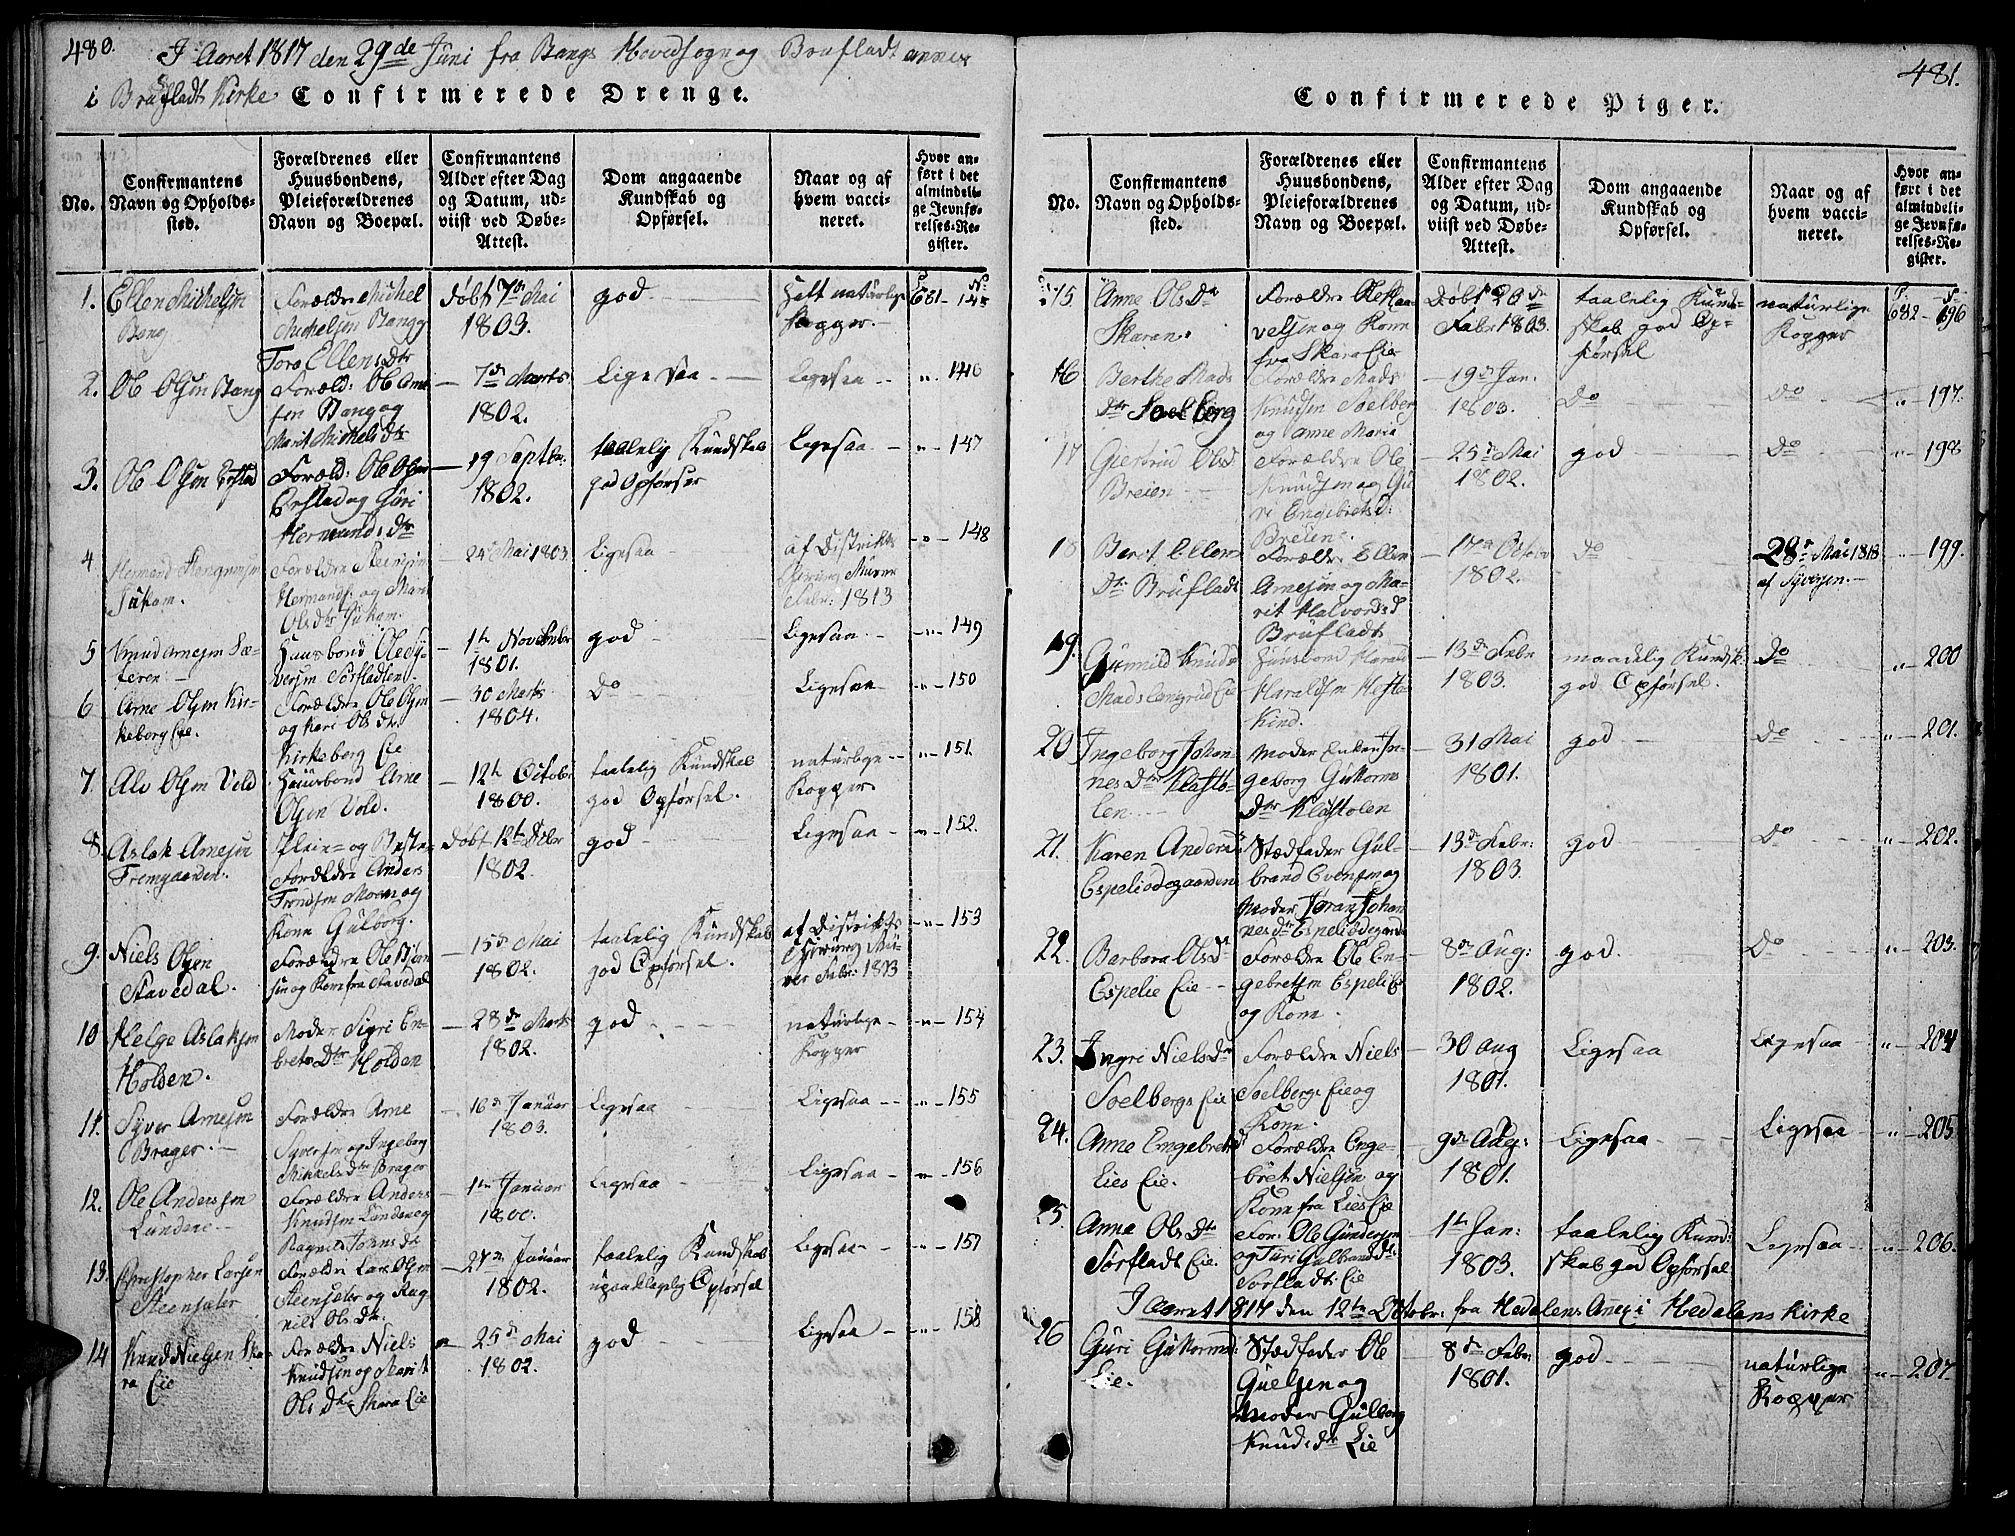 480.
I Aaret 1817 den 29de Juni fra Bangs Hovedsogn og Brufladt annex
i Brufladt Kirke
Confirmerede Drenge.
No.
Confirmantens
Navn og Opholds-
sted.
Forældrenes eller
Huusbondens,
Pleieforældrenes
Navn og Boepæl.
Confirmantens
Alder efter Dag
og Datum, ud-
viist ved Døbe-
Attest.
Dom angaaende
Kundskab og
Opførsel.
Naar og af
hvem vacci-
neret.
Hvor an-
ført i det
almindeli-
ge Jevnfø-
relses-Re-
gister.
1. Ellen Michelsen
Bang
Forældre Michel
Michelsen Bang og
Toro Ellens Dtr
Døbt 7de Mai
1803.
god
Haft naturlige
Kopper.
681 - 145
2. Ole Olsen Bang
Foræld: Ole Arne
sen Bang og
Marit Michels Dtr
7de Marts
1802.
Ligesaa
Ligesaa
146
3. Ole Olsen
Foræld: Ole Olsen
og Guri
Hermunds Dtr
19 Septbr:
1802.
taalelig Kundskab
god Opførsel
Ligesaa
147
4
Forældre
Hermands: og Mari
Ols Dtr
24 Mai 1803
Ligesaa
af Districts
Chirurg
Febr: 1813
148
5 Knud Arnesen Sæ-
teren
Huusbond Ole Sy-
versen Sørfladten.
1te Novembr
1801.
god
Ligesaa
149
6 Arne Olsen Kir-
keberg Eie.
Forældre Ole Olsen
og Kari Ols Dtr
Kirkeberg Eie
30 Marts
1804.
Do
Ligesaa
150
7. Alv Olsen Vold
Huusbond Arne
Olsen Vold.
12te Octobr
1800.
taalelig Kundskab
god Opførsel.
naturlige
Kopper
151.
8. Aslak Arnesen
Fremgaarden.
Pleie- og Beste-
Forældre Anders
Trondsen Moen og
Kone Gulborg.
Døbt 12te Debr
1802.
god
Ligesaa
152.
9. Niels Olsen
Stavedal.
Forældre Ole Bjørn
sen og Kone fra Stavedal
15de Mai
1802.
taalelig Kundskab
god Opførsel.
af Districts
Chirurg
Febr: 1813
153
10 Helge Aslaksen
Holden.
Moder Sigri En-
brets Dtr Holden
28de Marts
1802.
god
naturlige
Kopper
154
11. Syver Arnesen
Brager.
Forældre Arne
Syversen og Ingeborg
Mikkels Dtr Brager
16de Januar
1803.
Ligesaa
Ligesaa
155
12. Ole Andersen
Lundene
Forældre Anders
Knudsen Lunden og
Ragnild Johns Dtr
1te Januar
1800.
Ligesaa
Ligesaa
156
13. Christopher Larsen
Steensæter
Forældre Lars Olsen
Steensæter og Rag
nild Ols Dtr.
24de Januar
1802.
taalelig Kundskab
upaaklagelig Opførsel
Ligesaa
157
14 Knud Nielsen Ska-
ra Eie
Forældre Niels
Knudsen og Marit
Ols Dtr Skara Eie
25de Mai
1802.
god
Ligesaa
158
481.
Confirmerede Piger.
No.
Confirmantens
Navn og Opholds-
sted.
Forældrenes eller
Huusbondens,
Pleieforældrenes
Navn og Boepæl.
Confirmantens
Alder efter Dag
og Datum, ud-
viist ved Døbe-
Attest.
Dom angaaende
Kundskab og
Opførsel.
Naar og af
hvem vacci-
neret.
Hvor an-
ført i det
almindeli-
ge Jevnfø-
relses-Re-
gister.
15 Anne Ols Dtr
Skaran.
Forældre Ole
og Kone
fra Skara Eie
Døbt 20de
Febr 1803.
taalelig Kund-
skab god Op-
førsel
naturlige
Kopper
682 - 196
16 Berthe Mads
Dtr Soelberg
Forældre Mads
Knudsen Soelberg
og Anne Maria
19de Jan.
1803.
Do
Do
197.
17 Giertrud Olsd
Breien
Forældre Ole
Knudsen og Gu
ri Engebretsd:
Breiene.
25de Mai
1802.
god
Do
198
18 Berit Ellens
Dtr Brufladt
Forældre Ellen
Arnesen og Ma-
rit Halvordsd
Brufladt
17de Octobr
1802.
Do
28de Mai 1818
af Syversen.
199.
19. Gunnild Knuds
Madslangrud Eie
Huusbond Harald
Haraldsen Hefte
Kind.
13de Febr
1803.
maadelig Kundsk:
god Opførsel.
Do
200
20 Ingeborg Johan-
nes Dtr Klufto-
len
Moder Enken In-
geborg Guttorms
Dtr Kluftolen
31 Mai
1801.
god
Do
201.
21. Karen Andersd
Espeliødegaarden
Stedfader Gul-
brand Evensen og
Moder Jøran Johan
nes Dtr Espeliødegaard
13de Febr:
1803.
god
Do
202.
22. Barbara Ols Dtr
Espelie Eie
Forældre Ole En-
gebretsen Espeli Eie
og Kone.
8de Aug:
1802.
god.
Do
203.
23. Ingri Niels Dtr
Soelbergs Eie
Forældre Niels
Soelbergs Eie og
Kone.
30 Aug
1801.
Ligesaa
Ligesaa
204
24. Anne Engebretsd
Lies Eie.
Forældre Enge-
bret Nielsen og
Kone fra Lies Eie
9de Aug:
1801.
Ligesaa
Ligesaa
205
25. Anne Ols Dtr
Sørfladt Eie.
For: Ole Gundersen
og Turi Gulbrands Dtr:
Sørfladts Eie
1te Jan:
1803.
taalelig Kund:
skab god Opførsel
Ligesaa
206.
I Aaret 1817 den 12te Octobr: fra Hedalens Anex i Hedalens Kirke
26 Guri Guttormsd:
Lie.
Stedfader Ole
Gulsen og
Moder Gulborg
Knuds Dtr Lie
8de Febr
1801.
god
naturlige
Kopper
207.